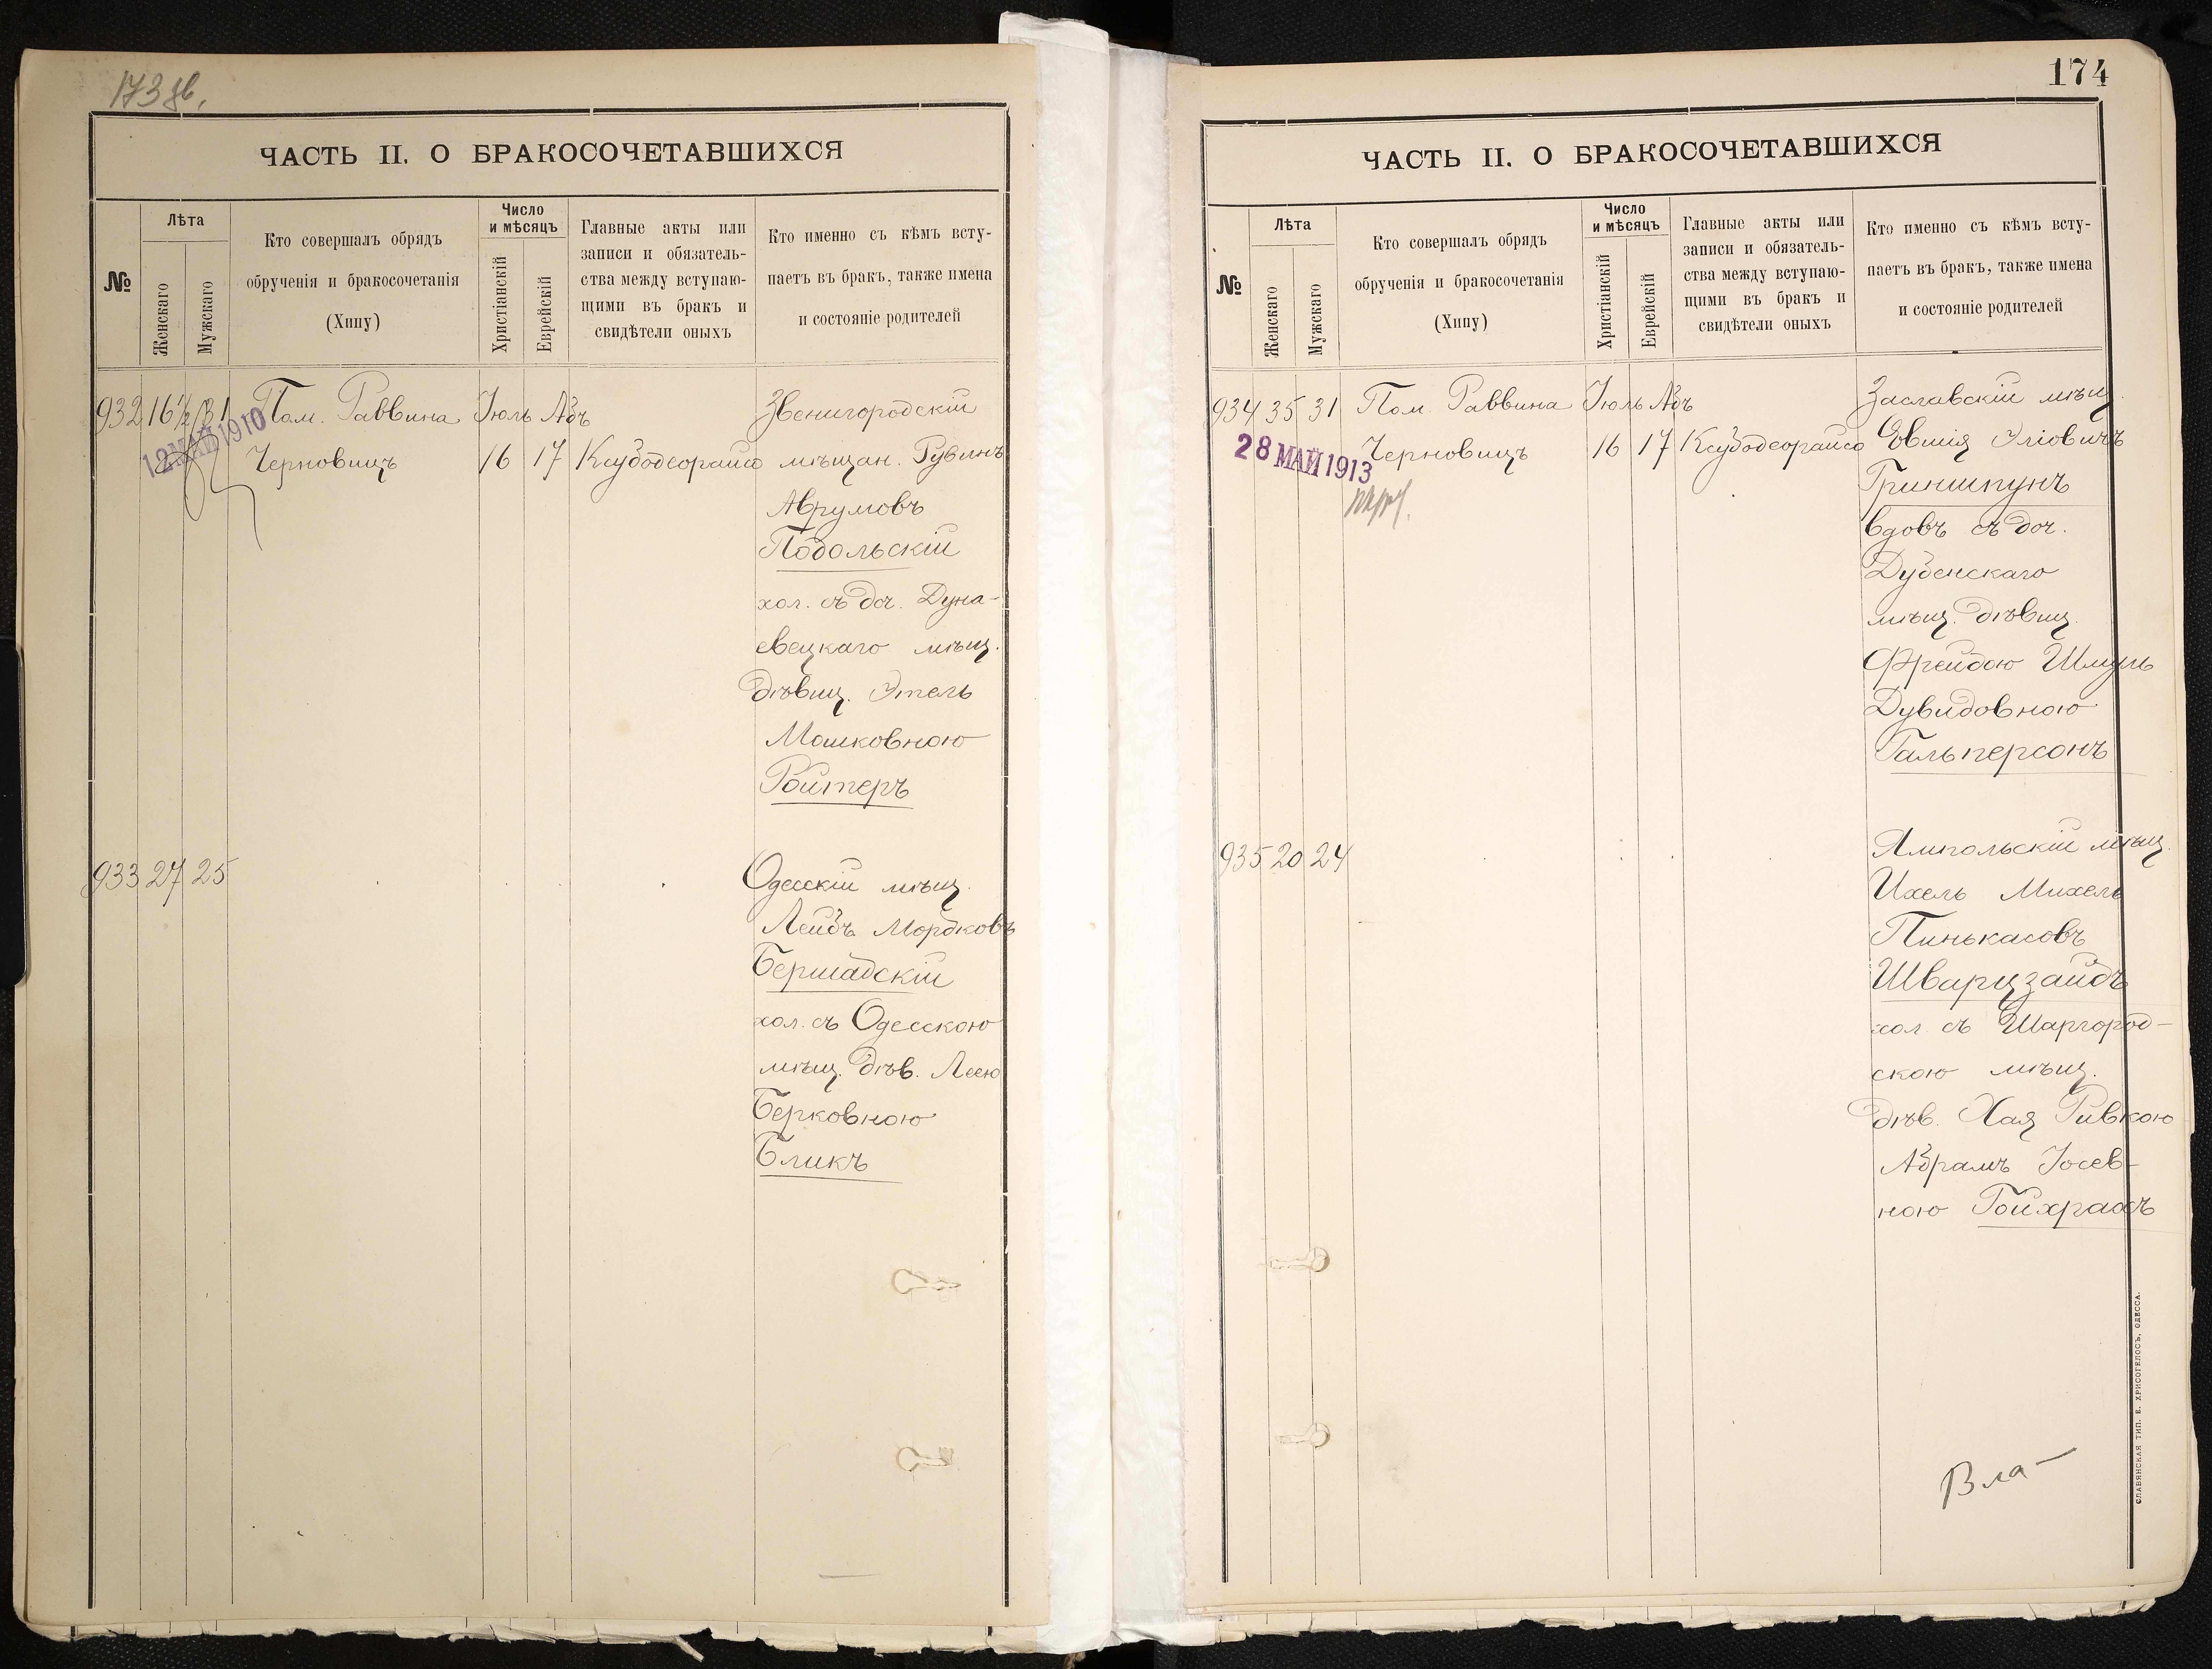 173 об.
ЧАСТЬ II. О БРАКОСОЧЕТАВШИХСЯ
№
Лѣта
Женскаго
Мужскаго
Кто совершалъ обрядъ
обрученія и бракосочетанія
(Хипу)
Число
и мѣсяцъ
Христіанскій
Еврейскій
Главные акты или
записи и обязатель-
ства между вступаю-
щими въ бракъ и
свидѣтели оныхъ
Кто именно съ кѣмъ всту-
паетъ въ бракъ, также имена
и состояніе родителей
932 16½ 31 Пом. Раввина Іюль Абъ Звенигородскій
12 МАЙ 1910
Черновицъ 16 17 Ксубодеорайсо мѣщан. Рувинъ
Аврумовъ
Подольскій
хол. съ доч. Дуна-
евецкаго мѣщ.
дѣвиц. Этель
Мошковною
Ройтеръ
933 27 25 Одесскій мѣщ.
Лейбъ Мордковъ
Бершадскій
хол. съ Одесскою
мѣщ. дѣв. Леею
Берковною
Бликъ
174
ЧАСТЬ II. О БРАКОСОЧЕТАВШИХСЯ
№
Лѣта
Женскаго
Мужскаго
Кто совершалъ обрядъ
обрученія и бракосочетанія
(Хипу)
Число
и мѣсяцъ
Христіанскій
Еврейскій
Главные акты или
записи и обязатель-
ства между вступаю-
щими въ бракъ и
свидѣтели оныхъ
Кто именно съ кѣмъ всту-
паетъ въ бракъ, также имена
и состояніе родителей
934 35 31 Пом. Раввина Іюль Абъ Заславскій мѣщ.
28 МАЙ 1913
Черновицъ 16 17 Ксубодеорайсо Овшія Эліовичъ
Гриншпунъ
вдовъ съ доч.
Дубенскаго
мѣщ. дѣвиц.
Фрейдою Шмуль
Дувидовною
Гальперсонъ
935 20 24 Ямпольскій мѣщ.
Ихель Михель
Пинькасовъ
Шварцзайдъ
хол. съ Шаргород-
скою мѣщ.
дѣв. Хая Ривкою
Абрамъ Іосев-
ною Гойхрахъ
Вла-
СЛАВЯНСКАЯ ТИП. Е. ХРИСОГЕЛОСЪ, ОДЕССА.